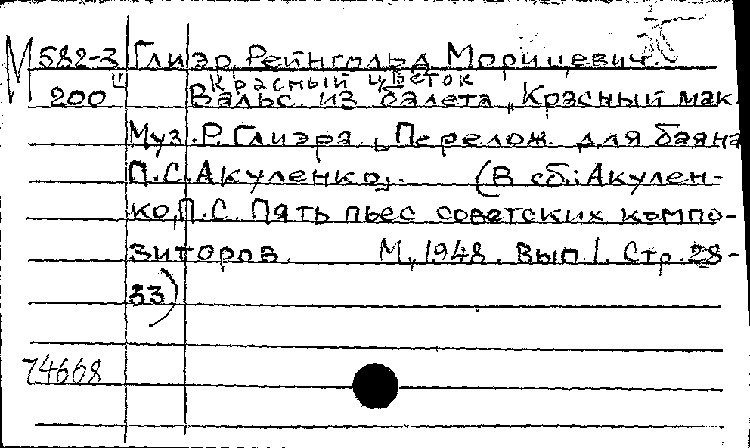 М 582-3 Глиэр, Рейнгольд Морицевич.
Красный цветок
200 Вальс из балета „Красный мак.
Муз. Р. Глиэра, Перелож. для баяна
П.С. Акуленко,. (В сб.: Акулен-
ко, П.С. Пять пьес советских компо-
зиторов. М., 1948. Вып 1. Стр. 28-
33)
74668